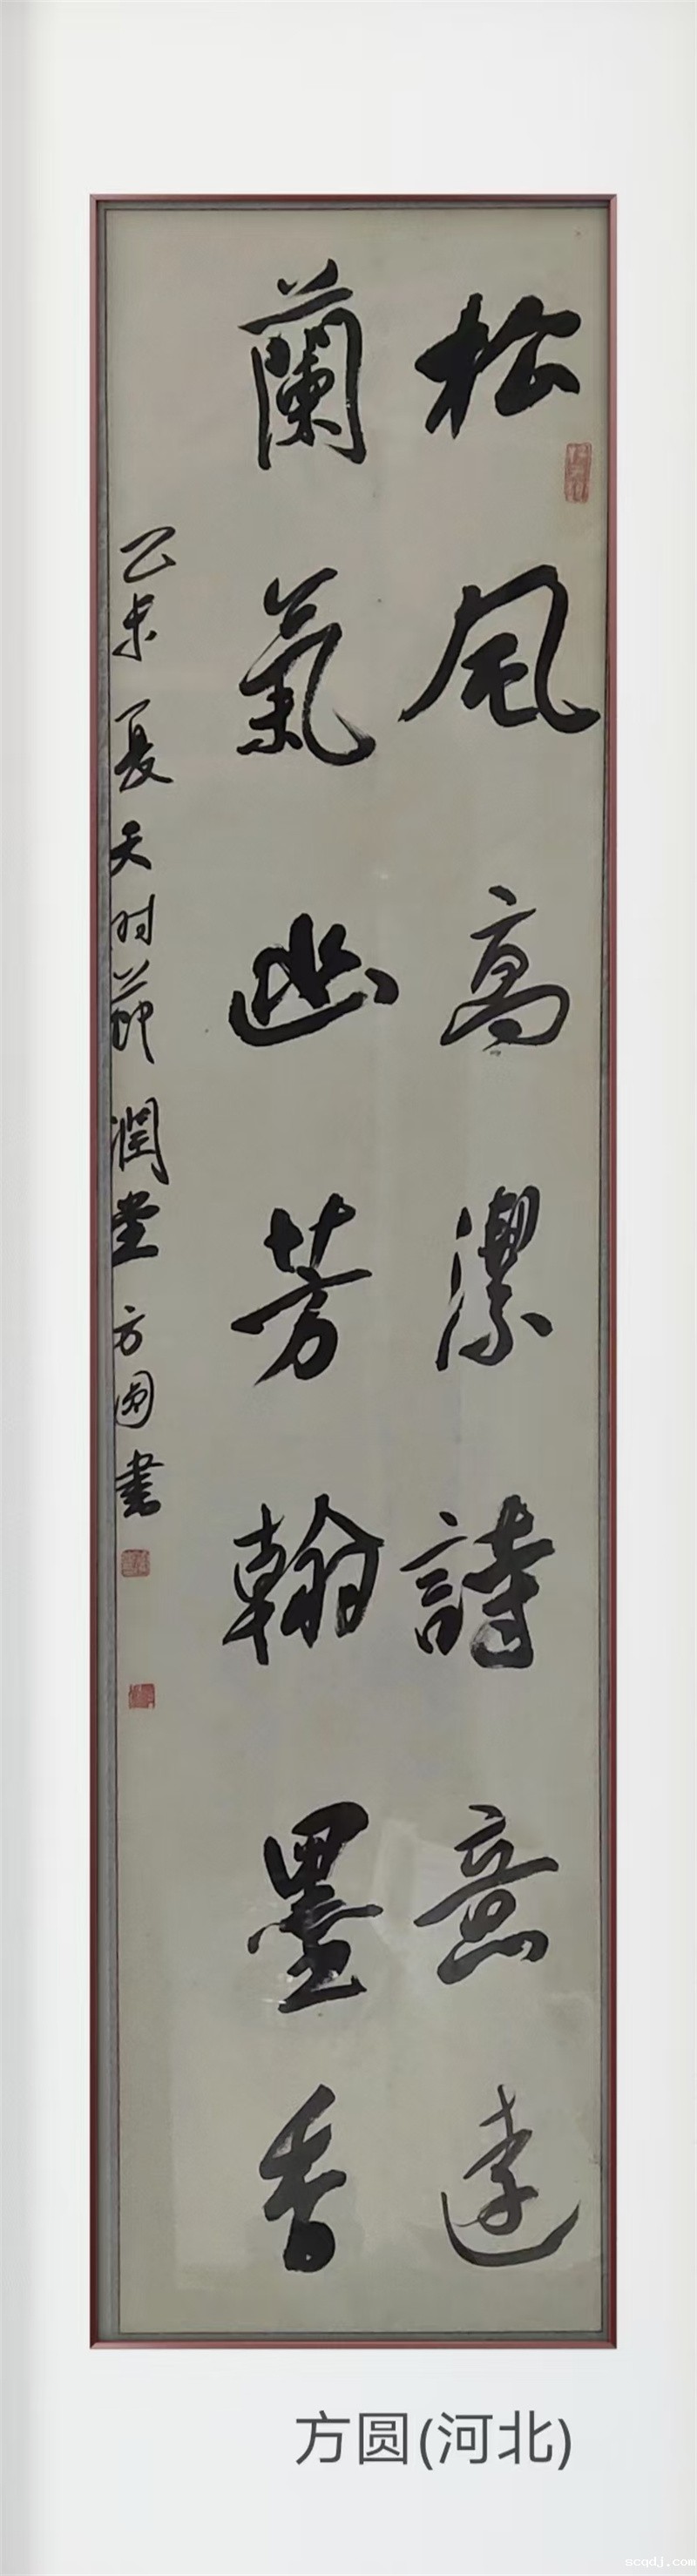 松風高潔詩意遠
蘭氣幽芳翰墨香
乙未夏天时節潤堂方圆書
方圆(河北)
scqdj.com